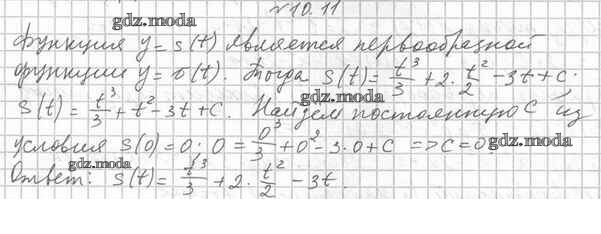 №10.11
gdz.moda
Функция y = s(t) является первообразной
функции y = v(t). Тогда s(t) = t³/3 + 2·t²/2 − 3t + C.
gdz.moda
s(t) = t³/3 + t² − 3t + C. Найдем постоянную C из
условия s(0) = 0; 0 = 0³/3 + 0² − 3·0 + C => C = 0.
gdz.moda gdz.moda
Ответ: s(t) = t³/3 + 2·t²/2 − 3t.